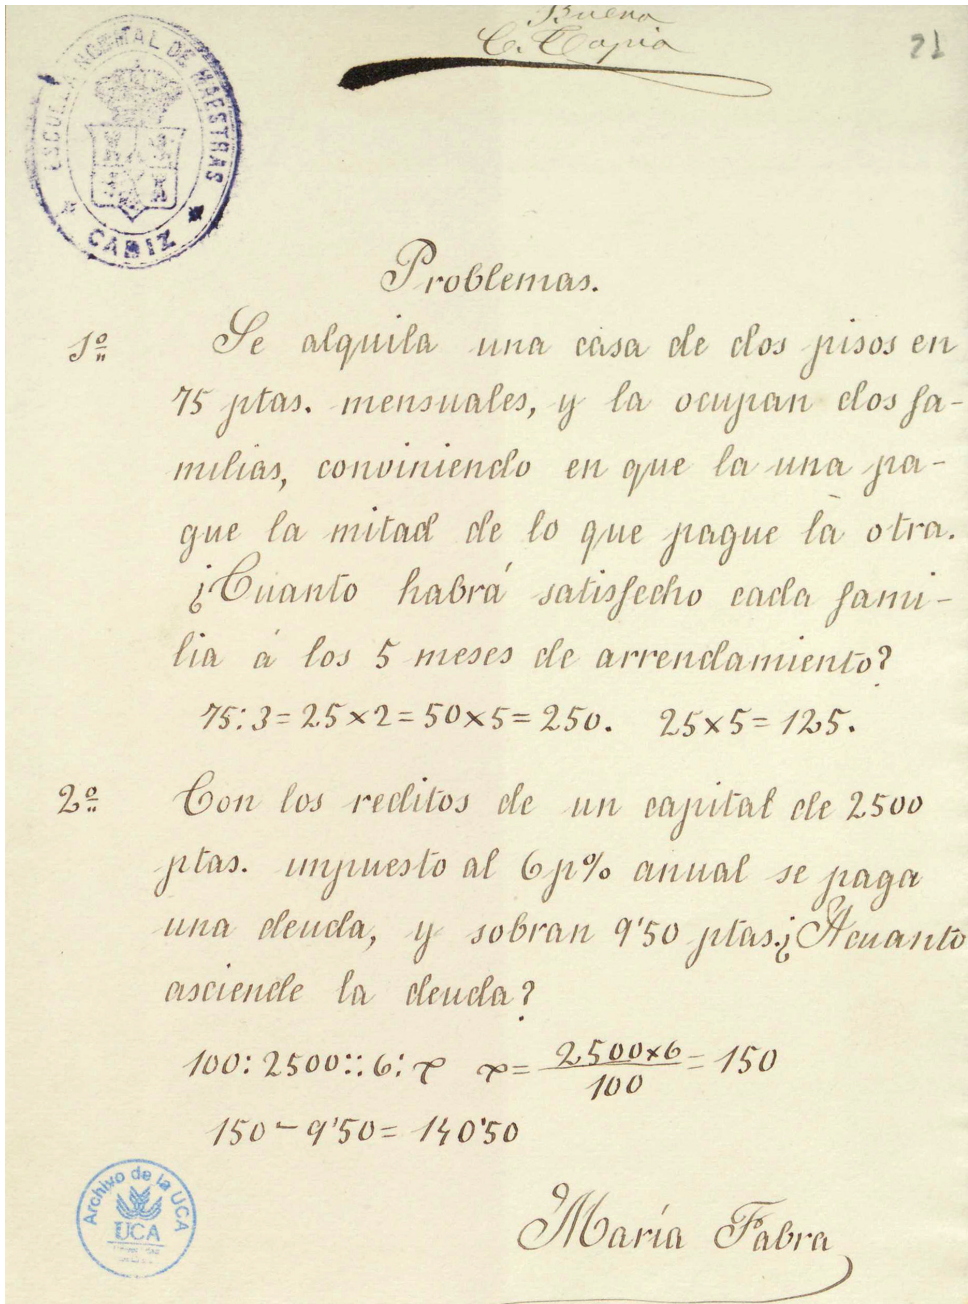 Buena
C. Tapia
21
ESCUELA NORMAL DE MAESTRAS
CADIZ
Problemas.
1º Se alquila una casa de dos pisos en
75 ptas. mensuales, y la ocupan dos fa-
milias, conviniendo en que la una pa-
gue la mitad de lo que pague la otra.
¿Cuanto habrá satisfecho cada fami-
lia á los 5 meses de arrendamiento?
75:3=25×2=50×5=250. 25×5=125.
2º Con los reditos de un capital de 2500
ptas. impuesto al 6 p% anual se paga
una deuda, y sobran 9'50 ptas. ¿A cuanto
asciende la deuda?
100:2500::6:x x= 2500×6/100 = 150
150-9'50=140'50
Archivo de la UCA
UCA
María Fabra